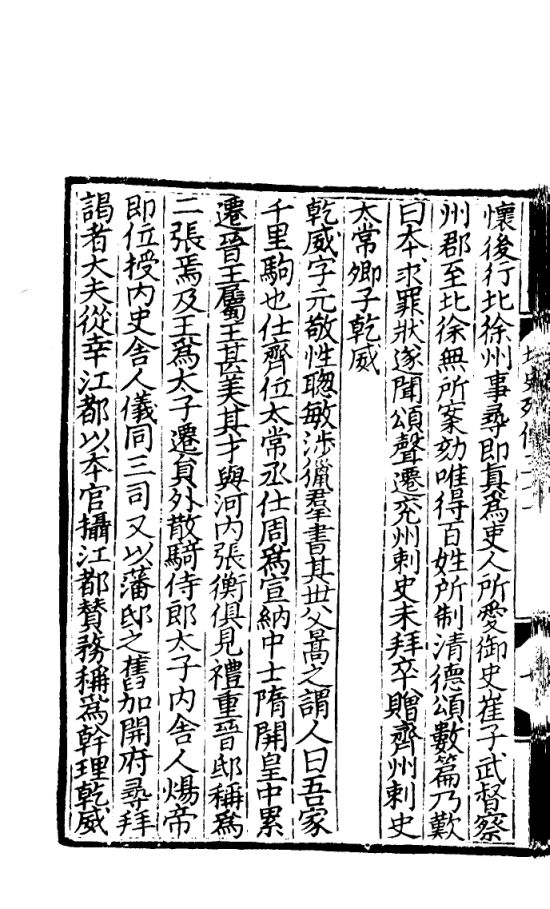 懷後行北徐州事尋即真爲吏人所愛御史崔子武督察
州郡至北徐無所案劾唯得百姓所制清德頌數篇乃歎
曰本求罪狀遂聞頌聲遷兖州刺史未拜卒贈齊州刺史
太常卿子乾威
乾威字元敬性聦敏渉獵羣書其丗父暠之謂人曰吾家
千里駒也仕齊位太常丞仕周爲宣納中士隋開皇中累
遷晉王屬王甚美其才與河内張衡俱見禮重晉邸稱爲
二張焉及王爲太子遷貟外散騎侍郎太子内舎人煬帝
即位授内史舎人儀同三司又以藩邸之舊加開府尋拜
謁者大夫從幸江都以本官攝江都賛務稱爲幹理乾威